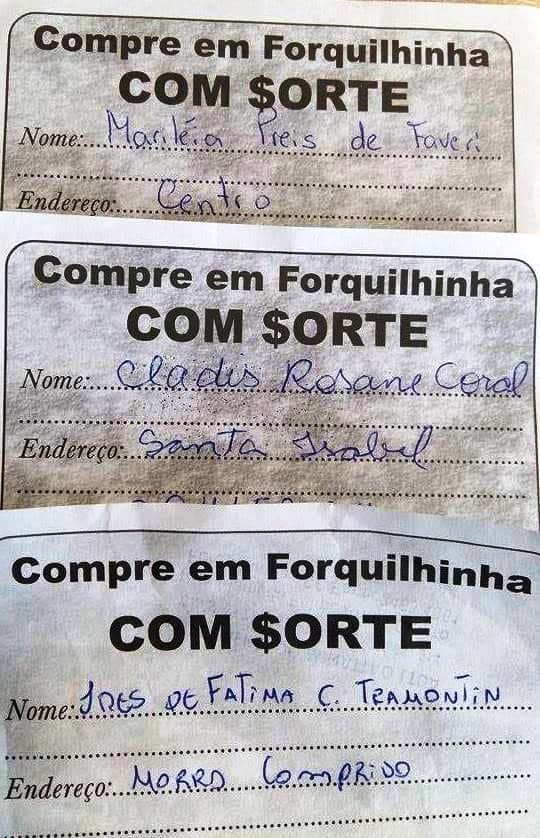 Compre em Forquilhinha
COM $ORTE
Nome: Mariléia Preis de Faveri
Endereço: Centro
Compre em Forquilhinha
COM $ORTE
Nome: Cladis Rosane Coral
Endereço: Santa Isabel
Compre em Forquilhinha
COM $ORTE
Nome: IRES DE FATIMA C. TRAMONTIN
Endereço: MORRO COMPRIDO